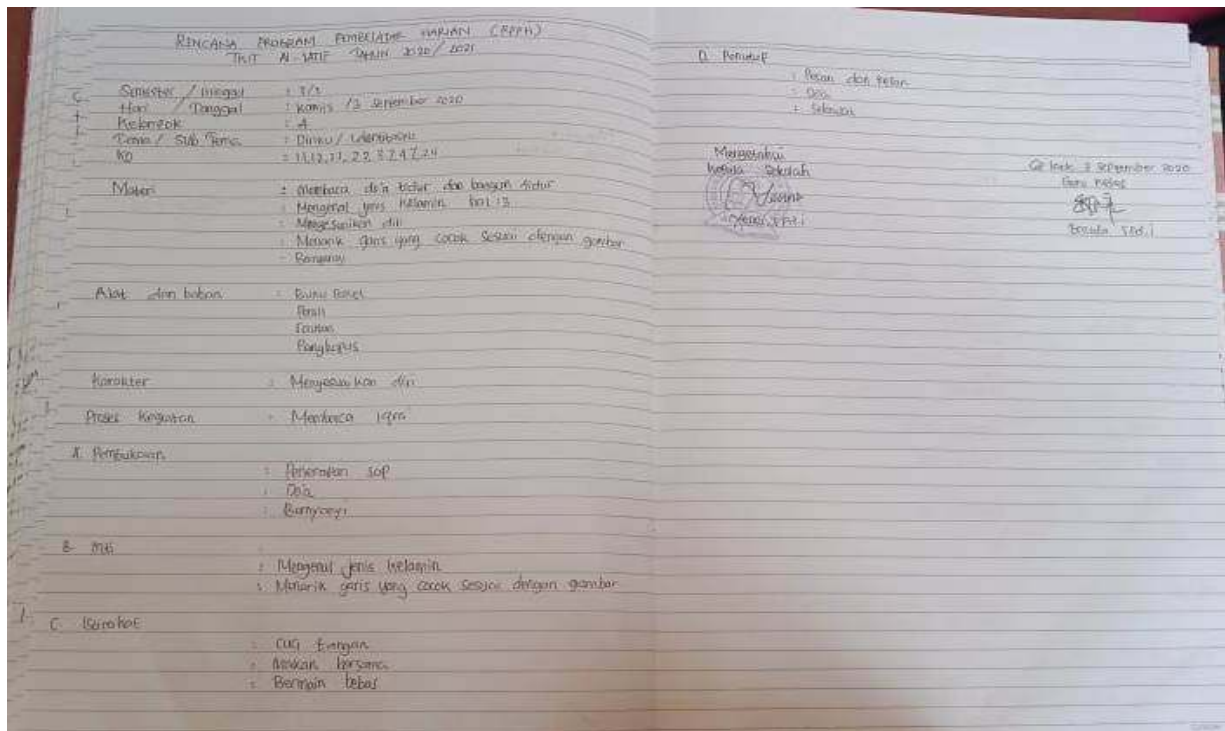 RENCANA PROGRAM PEMBELAJAR HARIAN (RPPH)
TKIT Al-LATIF TAHUN 2020/2021
Semester / minggu : 1/
Hari / Tanggal : Kamis /3 September 2020
Kelompok : A
Tema / Sub Tema : Diriku / Identitasku
KD
Materi : Membaca do'a tidur dan bangun tidur
: Mengenal jenis kelamin hal 13
: Menyesuaikan diri
: Menarik garis yang cocok sesuai dengan gambar
: Bernyanyi
Alat dan bahan : Buku Paket
Pensil
Penghapus
Karakter : Menyesuaikan diri
Proses Kegiatan : Membaca iqra
A. Pembukaan
: Penerapan SOP
: Do'a
: Bernyanyi
B. Inti
: Mengenal jenis kelamin
: Menarik garis yang cocok sesuai dengan gambar
C. Istirahat
: Cuci tangan
: Makan bersama
: Bermain bebas
D. Penutup
: Pesan dan kesan
: Doa
Mengetahui
Kepala Sekolah
3 September 2020
Guru Kelas